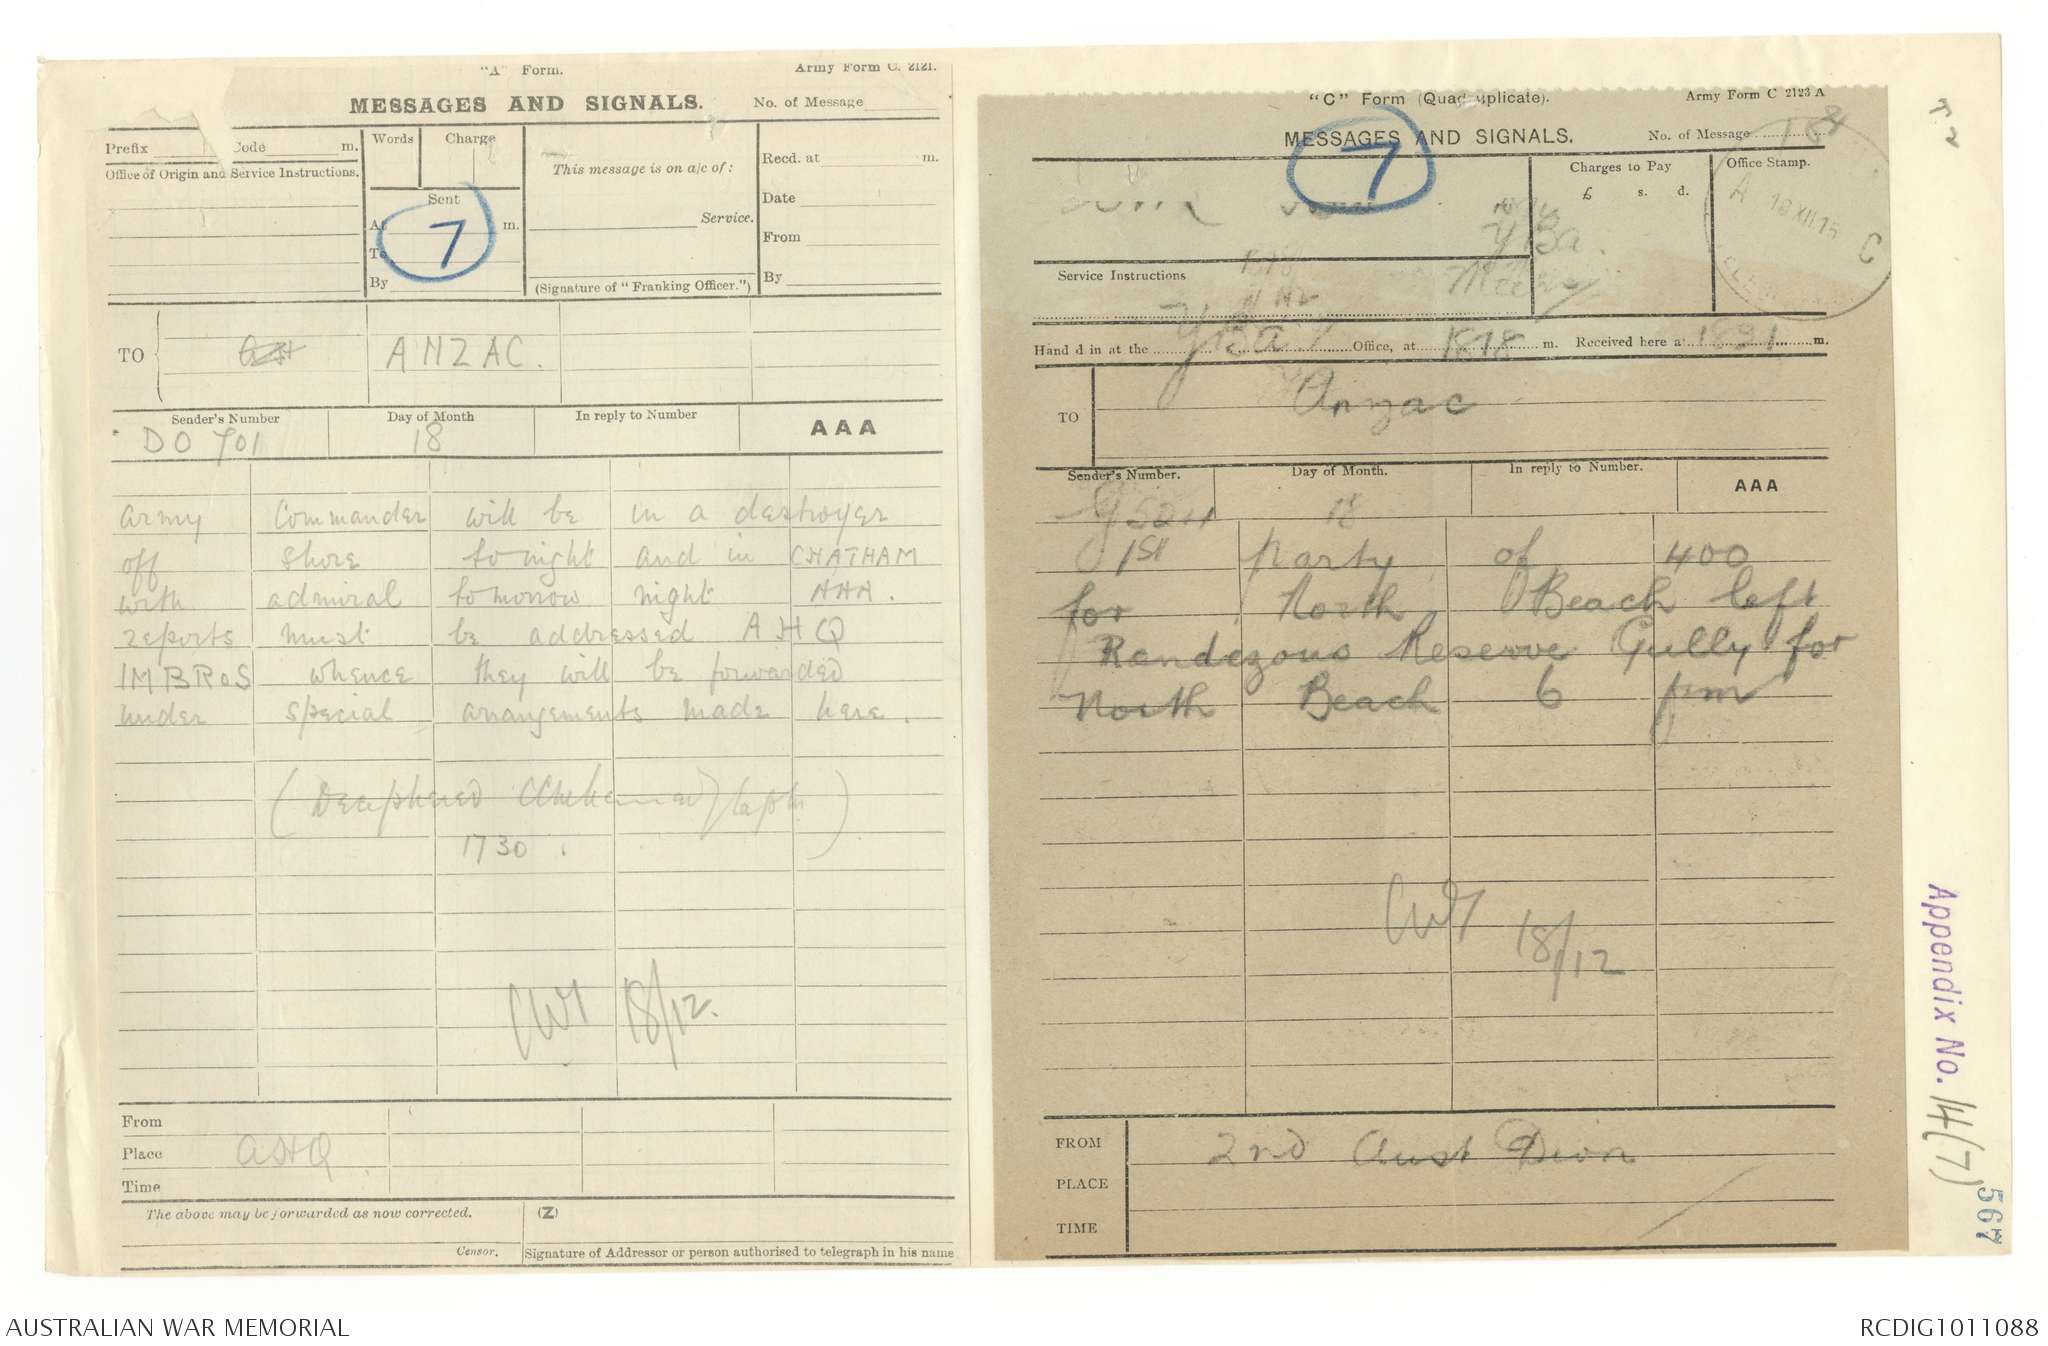 "A" Form.
Army Form C. 2121.
MESSAGES AND SIGNALS.
No. of Message
Prefix Code m.
Words Charge
This message is on a/c of:
Recd. at m.
Office of Origin and Service Instructions.
Sent
Date
At m.
Service.
7
From
To
By
(Signature of "Franking Officer.")
By
TO
ANZAC.
Sender's Number
Day of Month
In reply to Number
AAA
DO 701
18
army commander will be in a destroyer
off shore to night and in CHATHAM
with admiral tomorrow night AAA.
reports must be addressed AHQ
IMBROS whence they will be forwarded
under special arrangements made here.
(Deciphered
1730.
CWG 18/12.
From
Place
AHQ
Time
The above may be forwarded as now corrected.
(Z)
Censor.
Signature of Addressor or person authorised to telegraph in his name
"C" Form (Quadruplicate).
Army Form C 2123 A
MESSAGES AND SIGNALS.
No. of Message
7
Charges to Pay
£ s. d.
Office Stamp.
A
18 XII 15
C
YBa.
Service Instructions
Handed in at the YBA Office, at 1818 m. Received here at 1821 m.
TO
Anzac
Sender's Number.
Day of Month.
In reply to Number.
AAA
18
1st party of 400
for North Beach left
Rendezous Reserve Gully for
North Beach 6 pm
18/12
FROM
2nd Aust Divn
PLACE
TIME
Appendix No. 14(7)
567
AUSTRALIAN WAR MEMORIAL
RCDIG1011088